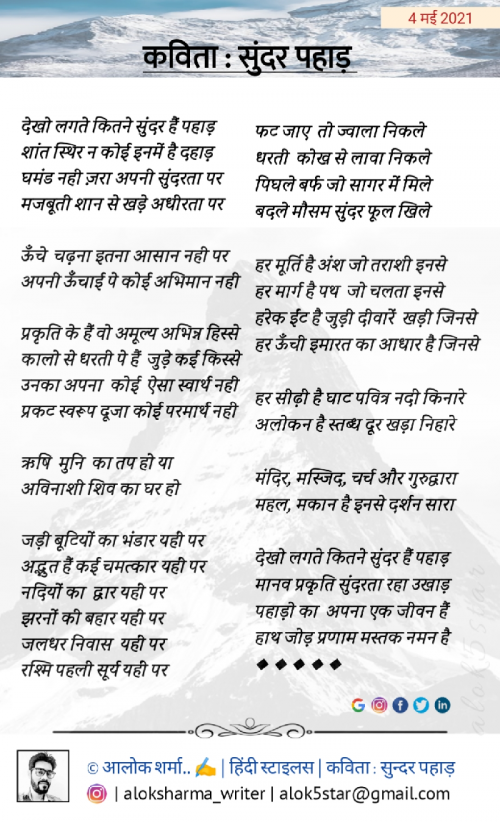 4 मई 2021
कविता : सुंदर पहाड़
देखो लगते कितने सुंदर हैं पहाड़
शांत स्थिर न कोई इनमें है दहाड़
घमंड नही ज़रा अपनी सुंदरता पर
मजबूती शान से खड़े अधीरता पर
ऊँचे चढ़ना इतना आसान नही पर
अपनी ऊँचाई पे कोई अभिमान नही
प्रकृति के हैं वो अमूल्य अभिन्न हिस्से
कालो से धरती पे हैं जुड़े कई किस्से
उनका अपना कोई ऐसा स्वार्थ नही
प्रकट स्वरूप दूजा कोई परमार्थ नही
ऋषि मुनि का तप हो या
अविनाशी शिव का घर हो
जड़ी बूटियों का भंडार यही पर
अद्भुत हैं कई चमत्कार यही पर
नदियों का द्वार यही पर
झरनों की बहार यही पर
जलधर निवास यही पर
रश्मि पहली सूर्य यही पर
फट जाए तो ज्वाला निकले
धरती कोख से लावा निकले
पिघले बर्फ जो सागर में मिले
बदले मौसम सुंदर फूल खिले
हर मूर्ति है अंश जो तराशी इनसे
हर मार्ग है पथ जो चलता इनसे
हरेक ईंट है जुड़ी दीवारें खड़ी जिनसे
हर ऊँची इमारत का आधार है जिनसे
हर सीढ़ी है घाट पवित्र नदी किनारे
अलोकन है स्तब्ध दूर खड़ा निहारे
मंदिर, मस्जिद, चर्च और गुरुद्वारा
महल, मकान है इनसे दर्शन सारा
देखो लगते कितने सुंदर हैं पहाड़
मानव प्रकृति सुंदरता रहा उखाड़
पहाड़ो का अपना एक जीवन हैं
हाथ जोड़ प्रणाम मस्तक नमन है
alok5star
© आलोक शर्मा.. ✍ | हिंदी स्टाइलस | कविता : सुन्दर पहाड़
| aloksharma_writer | alok5star@gmail.com